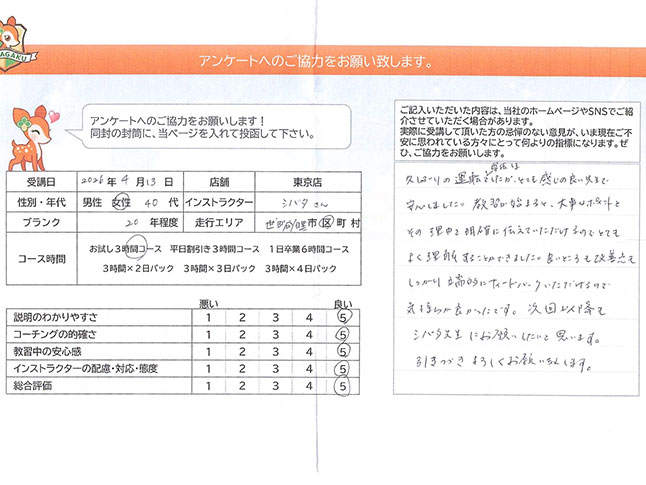 AGAKU
アンケートへのご協力をお願い致します。
アンケートへのご協力をお願いします！
同封の封筒に、当ページを入れて投函して下さい。
ご記入いただいた内容は、当社のホームページやSNSでご紹
介させていただく場合があります。
実際に受講して頂いた方の忌憚のない意見が、いま現在ご不
安に思われている方々にとって何よりの指標になります。ぜ
ひ、ご協力をお願いします。
受講日 2026年 4月 13日 店舗 東京店
性別・年代 男性 女性 40代 インストラクター シバタさん
ブランク 20年程度 走行エリア 世田谷 市 区 町 村
コース時間 お試し3時間コース 平日割引き3時間コース 1日卒業6時間コース
3時間×2日パック 3時間×3日パック 3時間×4日パック
悪い 良い
説明のわかりやすさ 1 2 3 4 5
コーチングの的確さ 1 2 3 4 5
教習中の安心感 1 2 3 4 5
インストラクターの配慮・対応・態度 1 2 3 4 5
総合評価 1 2 3 4 5
久しぶりの運転でしたが、とても感じの良い先生で
安心しました。教習が始まると、大事なポイントと
その理由を明確に伝えていただけるのでとても
よく理解することができました。良いところも改善点も
しっかり端的にフィードバックいただけるので
気持ちが良かったです。次回以降も
シバタ先生にお願いしたいと思います。
引きつづきよろしくお願いいたします。